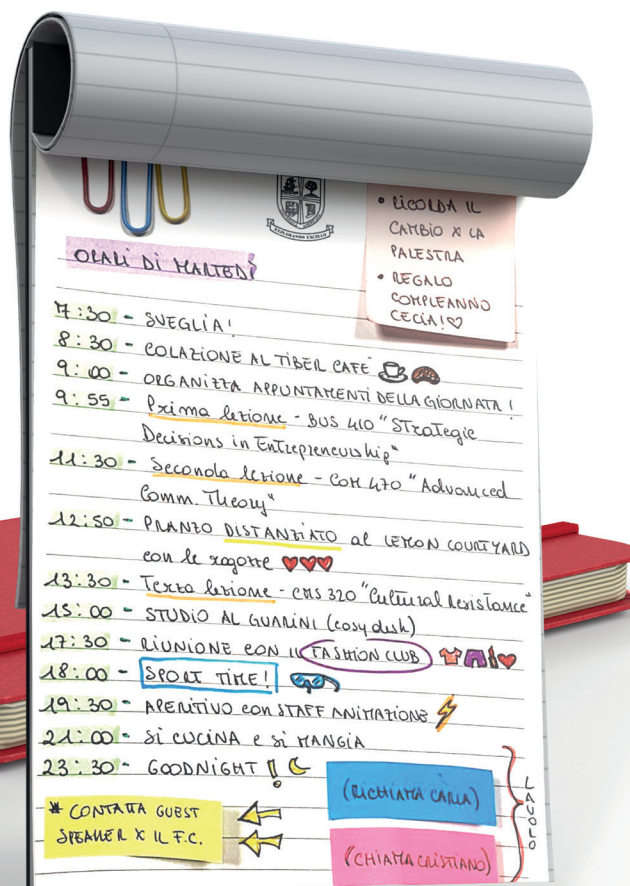 EXPLORANDO EXCELLO
• RICORDA IL
CAMBIO X LA
PALESTRA
• REGALO
COMPLEANNO
CECIA!♡
ORARI DI MARTEDÌ
7:30 - SVEGLIA!
8:30 - COLAZIONE AL TIBER CAFÈ
9:00 - ORGANIZZA APPUNTAMENTI DELLA GIORNATA!
9:55 - Prima lezione - BUS 410 "Strategic
Decisions in Entrepreneurship"
11:30 - Seconda lezione - COM 470 "Advanced
Comm. Theory"
12:50 - PRANZO DISTANZIATO al LEMON COURTYARD
con le ragazze ♥♥♥
13:30 - Terza lezione - CMS 320 "Cultural Resistance"
15:00 - STUDIO AL GUARINI (cosy desk)
17:30 - RIUNIONE CON IL FASHION CLUB
18:00 - SPORT TIME!
19:30 - APERITIVO con STAFF ANIMAZIONE
21:00 - SI CUCINA e SI MANGIA
23:30 - GOODNIGHT!
* CONTATTA GUEST
SPEAKER X IL F.C.
(RICHIAMA CARLA)
(CHIAMA CRISTIANO)
LAVORO